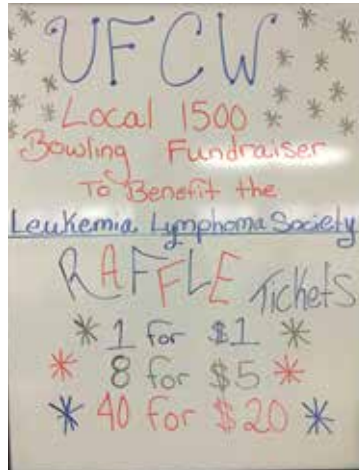 UFCW
Local 1500
Bowling Fundraiser
To Benefit the
Leukemia Lymphoma Society
RAFFLE Tickets
1 for $1
8 for $5
40 for $20